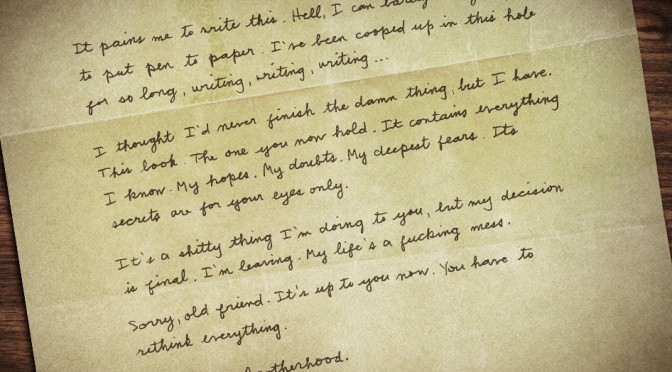 It pains me to write this. Hell, I can
to put pen to paper. I've been cooped up in this hole
for so long, writing, writing, writing...
I thought I'd never finish the damn thing, but I have.
This book. The one you now hold. It contains everything
I know. My hopes. My doubts. My deepest fears. Its
secrets are for your eyes only.
It's a shitty thing I'm doing to you, but my decision
is final. I'm leaving. My life's a fucking mess.
Sorry, old friend. It's up to you now. You have to
rethink everything.